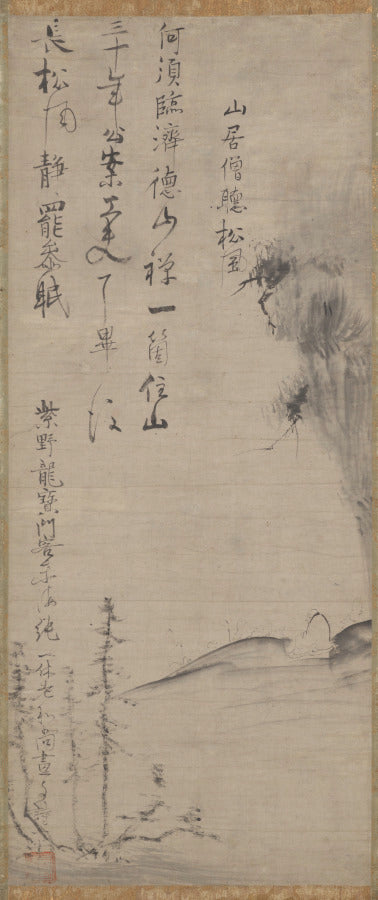 山居僧聽松風
何須臨濟德山禅一箇住山
三十年公案了畢後
長松風静罷參眠
紫野龍寶門客純一休老和尚畫